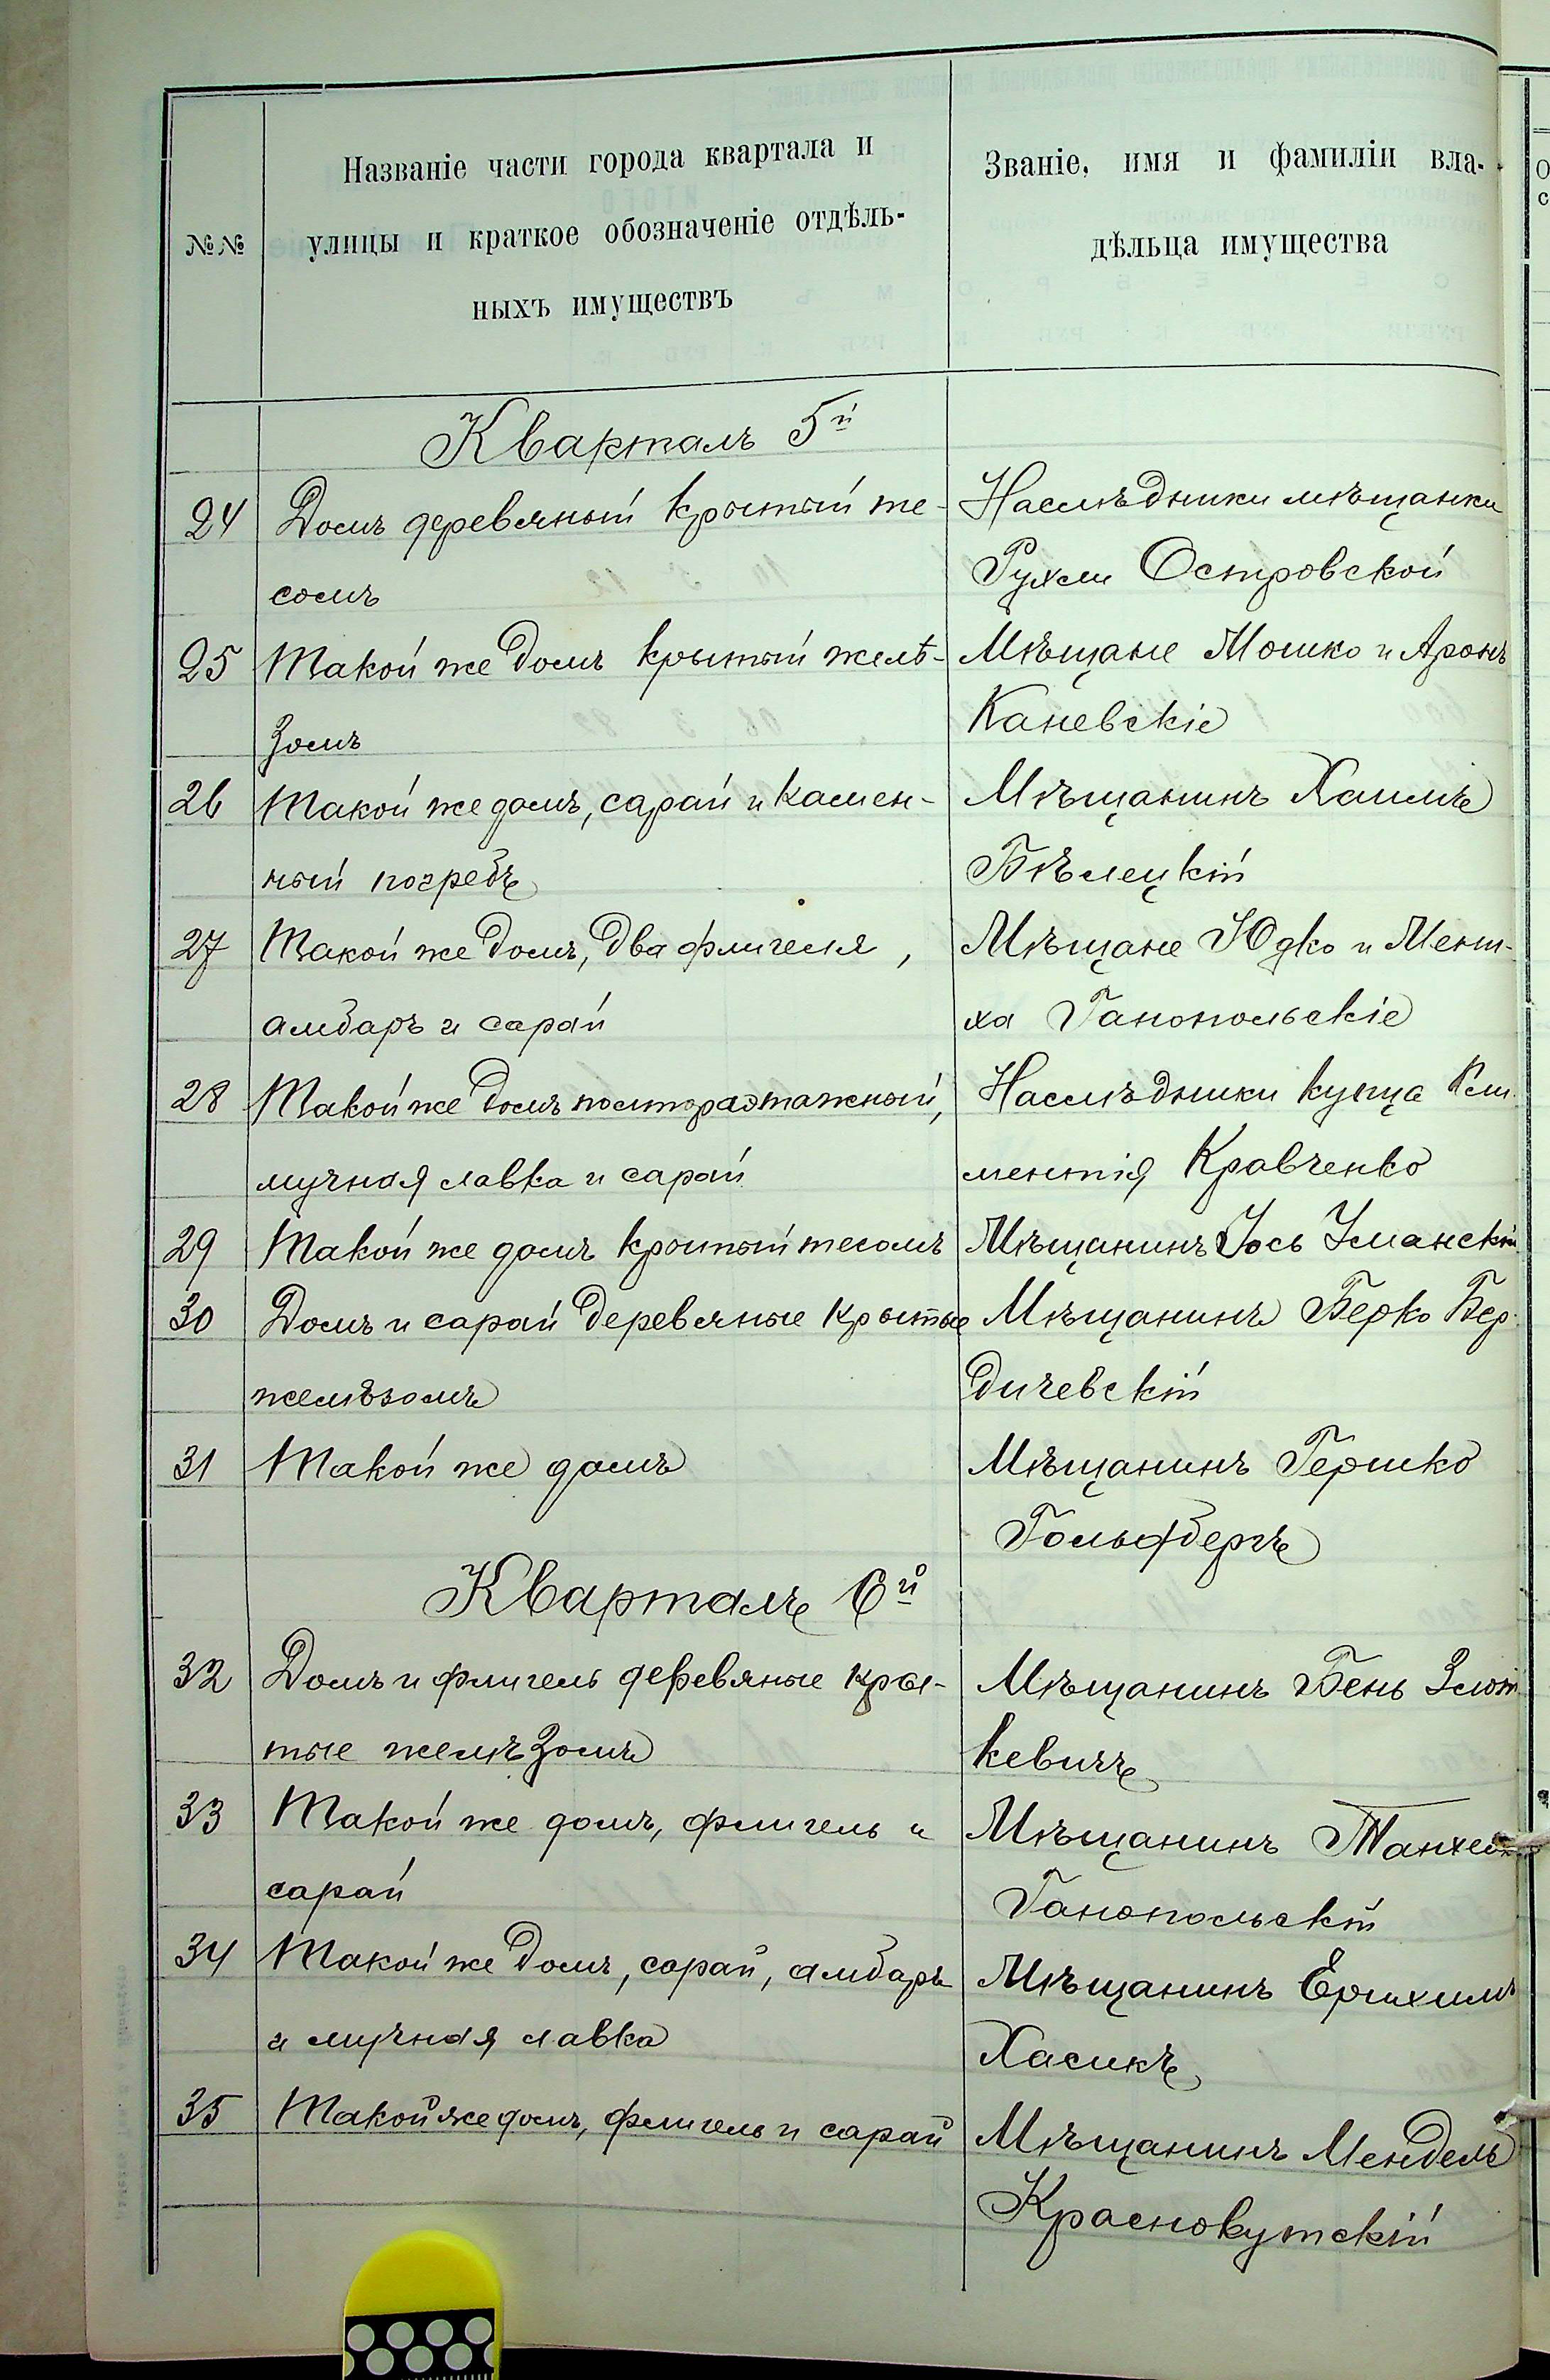 №№
Названіе части города квартала и
улицы и краткое обозначеніе отдѣль-
ныхъ имуществъ
Званіе, имя и фамиліи вла-
дѣльца имущества
Кварталъ 5й
24 Домъ деревяный крытый те- Наслѣдники мѣщанки
сомъ Рухли Островской
25 Такой же домъ крытый желѣ- Мѣщане Мошко и Аронъ
зомъ Каневскіе
26 Такой же домъ, сарай и камен- Мѣщанинъ Хаимъ
ный погребъ Бѣлецкій
27 Такой же домъ, два флигеля, Мѣщане Юдко и
амбаръ и сарай Ганопольскіе
28 Такой же домъ полтораэтажный, Наслѣдники купца Кли-
мучная лавка и сарай ментія Кравченко
29 Такой же домъ крытый тесомъ Мѣщанинъ Іось Уманскій
30 Домъ и сарай деревяные крытые Мѣщанинъ Берко Бер-
желѣзомъ дичевскій
31 Такой же домъ Мѣщанинъ Гершко
Гольдбергъ
Кварталъ 6й
32 Домъ и флигель деревяные кры- Мѣщанинъ Бень
тые желѣзомъ кевичъ
33 Такой же домъ, флигель и Мѣщанинъ
сарай Ганопольскій
34 Такой же домъ, сарай, амбаръ Мѣщанинъ
и мучная лавка Хасикъ
35 Такой же домъ, флигель и сарай Мѣщанинъ Мендель
Краснокутскій